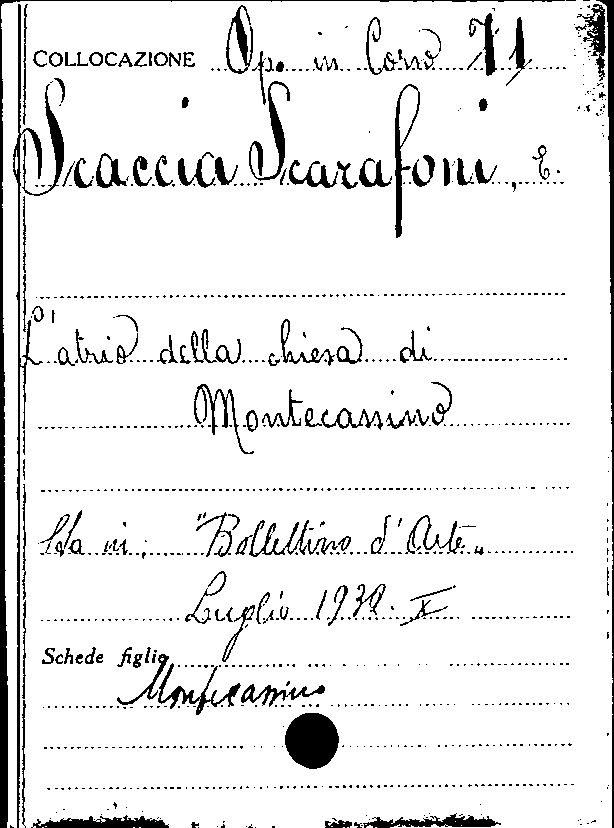 COLLOCAZIONE Op. in Corso 71
Scaccia Scarafoni, E.
L'atrio della chiesa di
Montecassino
in: "Bollettino d'Arte"
Luglio 1932. X
Schede figlie
Montecassino